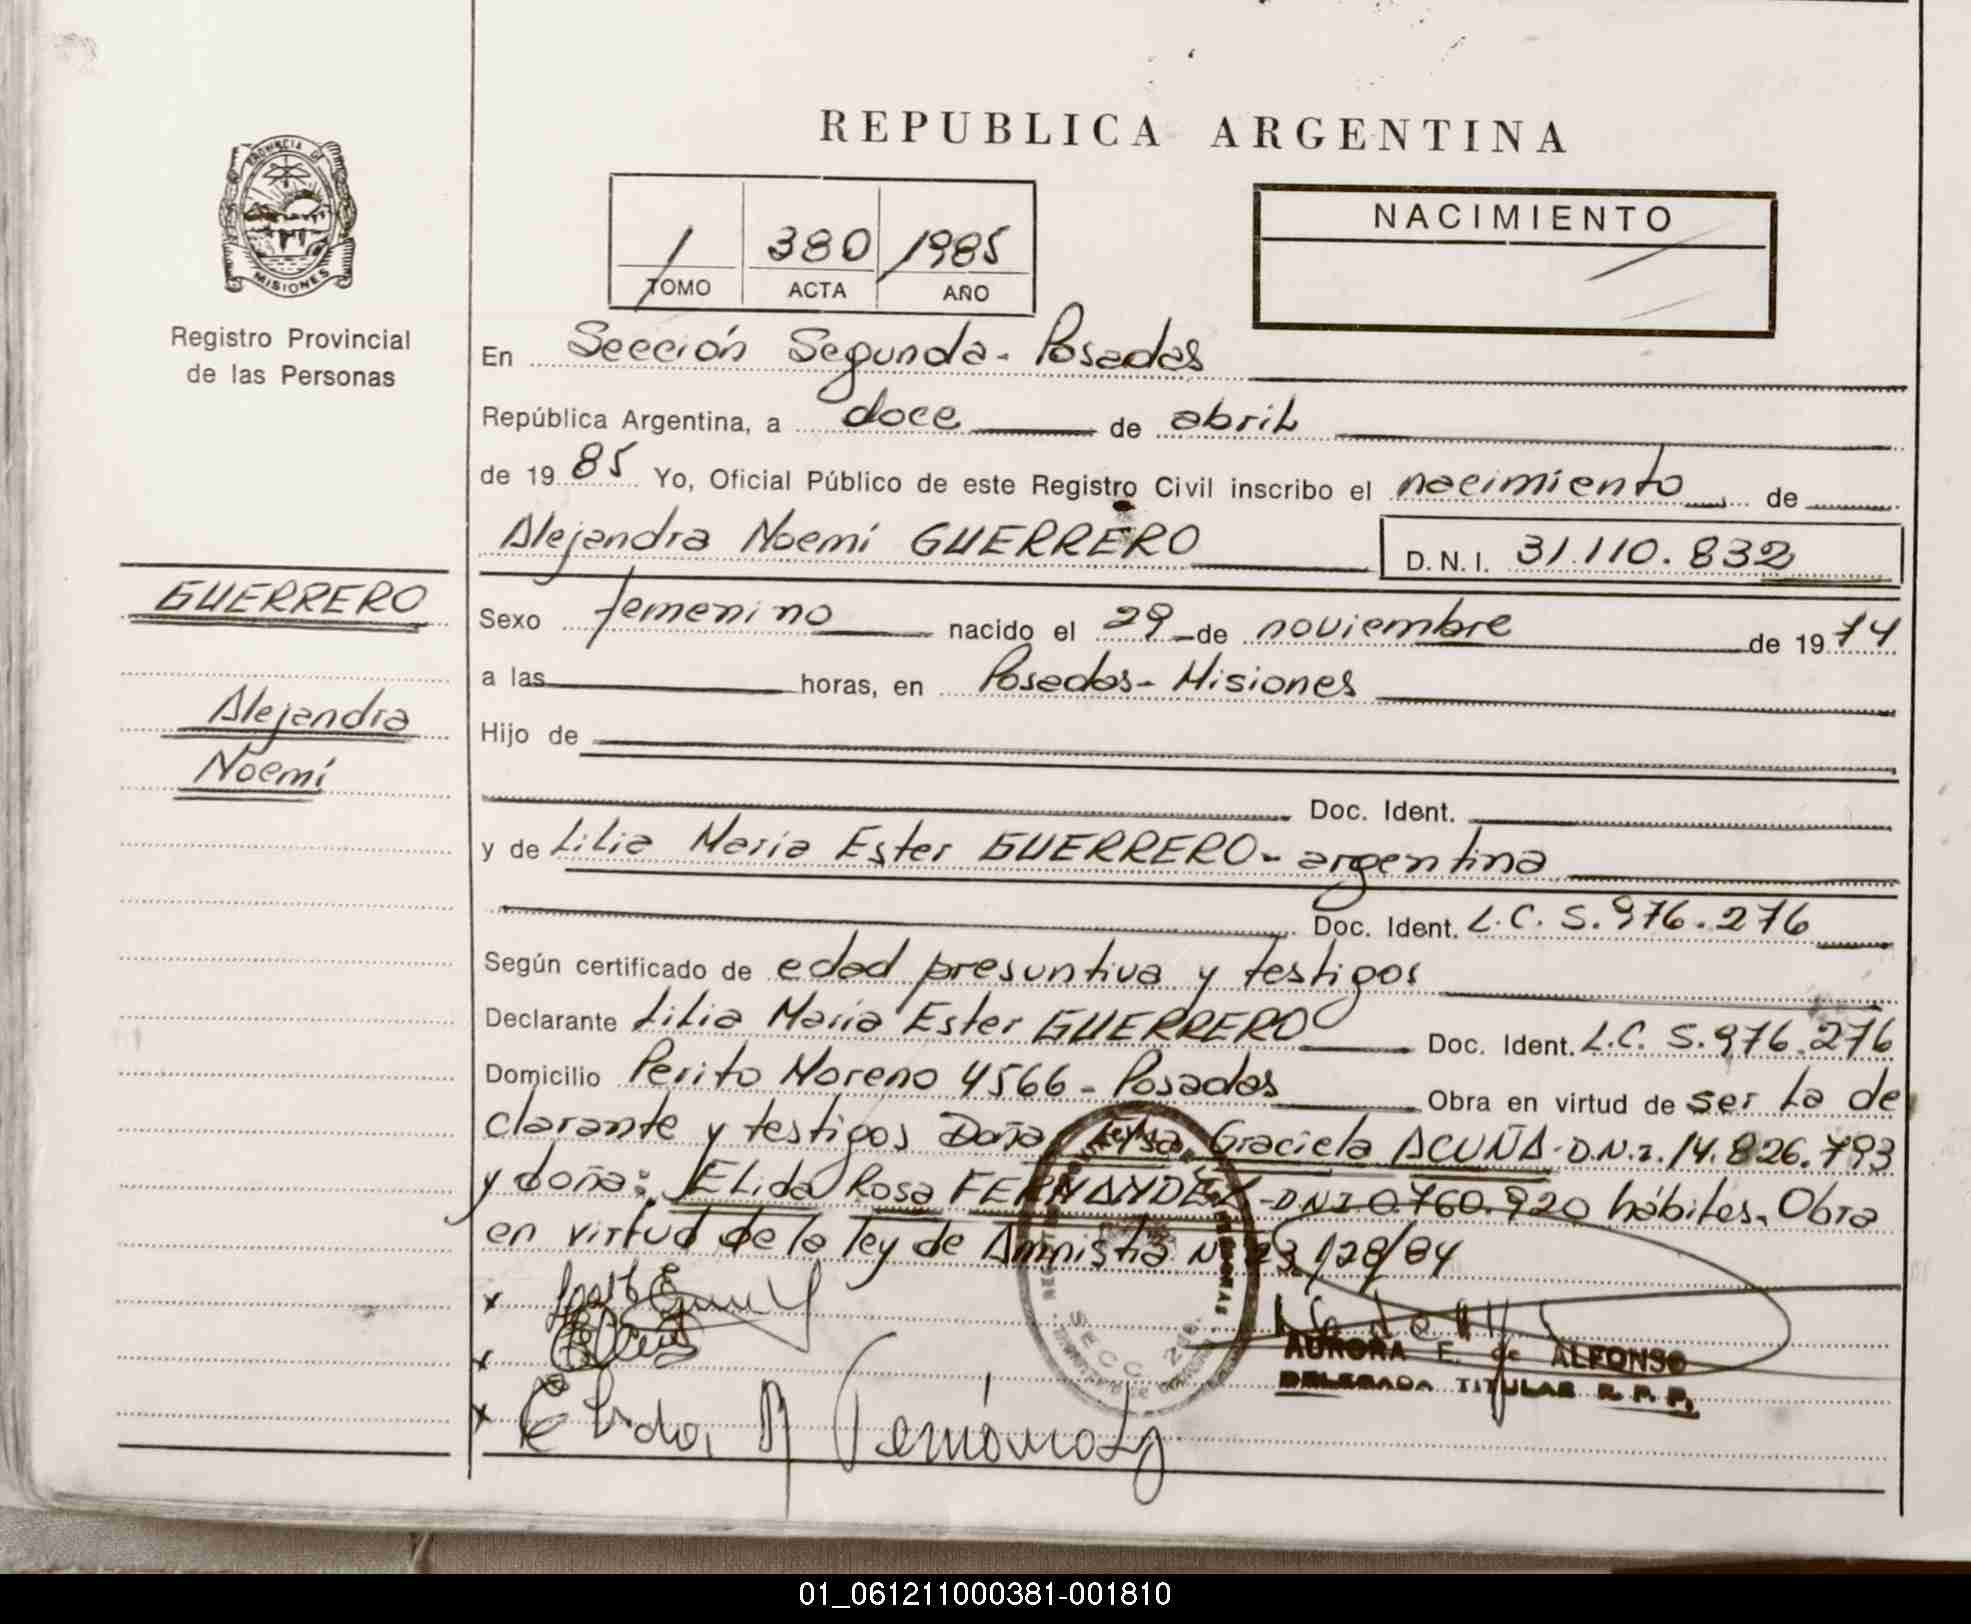 REPUBLICA ARGENTINA
PROVINCIA DE
MISIONES
Registro Provincial
de las Personas
1 380 1985
TOMO ACTA AÑO
NACIMIENTO
En Sección Segunda - Posadas
República Argentina, a doce de abril
de 1985 Yo, Oficial Público de este Registro Civil inscribo el nacimiento de
Alejandra Noemí GUERRERO D.N.I. 31.110.832
GUERRERO
Alejandra
Noemí
Sexo femenino nacido el 29 de noviembre de 1974
a las horas, en Posadas - Misiones
Hijo de
Doc. Ident.
y de Lilia María Ester GUERRERO - argentina
Doc. Ident. L.C. 5.976.276
Según certificado de edad presuntiva y testigos
Declarante Lilia María Ester GUERRERO Doc. Ident. L.C. 5.976.276
Domicilio Perito Moreno 4566 - Posadas Obra en virtud de ser la de
clarante y testigos Doña Graciela ACUÑA - D.N.I. 14.826.793
y doña: Elida Rosa FERNANDEZ - DNI 0.760.920 hábiles. Obra
en virtud de la ley de Amnistia Nº 23.128/84
SECC. 2da.
AURORA E. de ALFONSO
DELEGADA TITULAR R. P. P.
Elida R Fernández
01_061211000381-001810